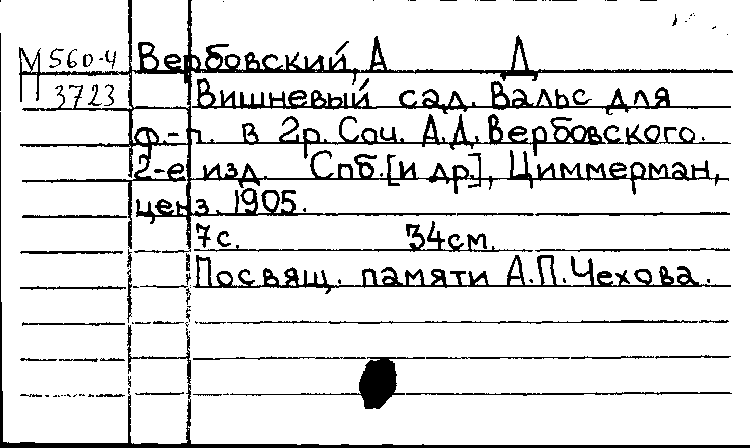 М 560-4
3723
Вербовский, А Д
Вишневый сад. Вальс для
ф.-п. в 2р. Соч. А.Д. Вербовского.
2-е изд. Спб.[и др.], Циммерман,
ценз. 1905.
7с. 34см.
Посвящ. памяти А.П.Чехова.